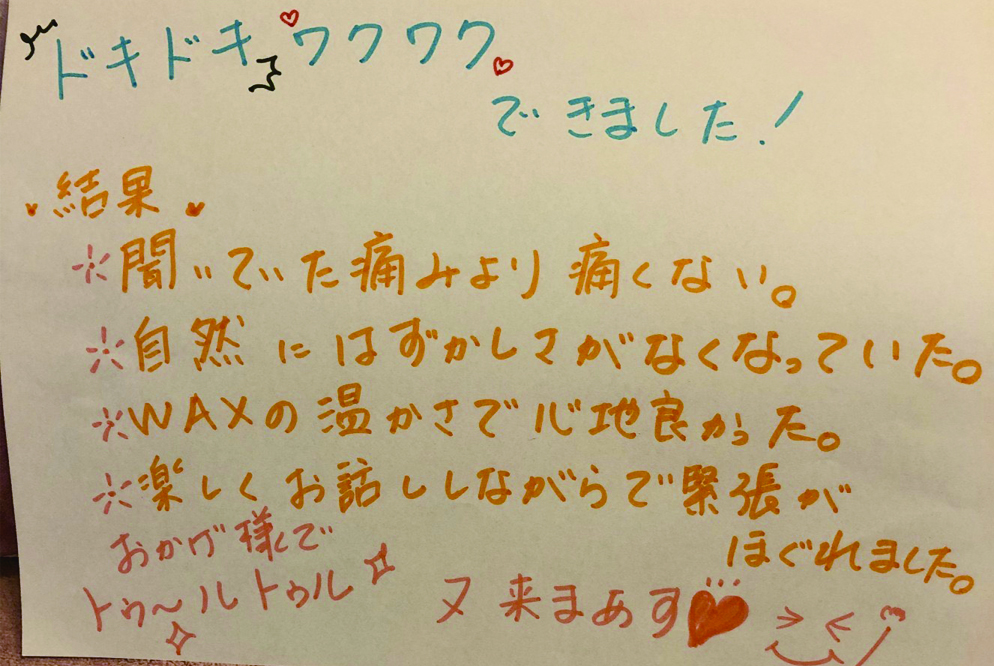 ドキドキワクワク
できました!
結果
※聞いていた痛みより痛くない。
※自然にはずかしさがなくなっていた。
※WAXの温かさで心地良かった。
※楽しくお話ししながらで緊張が
ほぐれました。
おかげ様で
トゥ〜ルトゥル
又来まあす